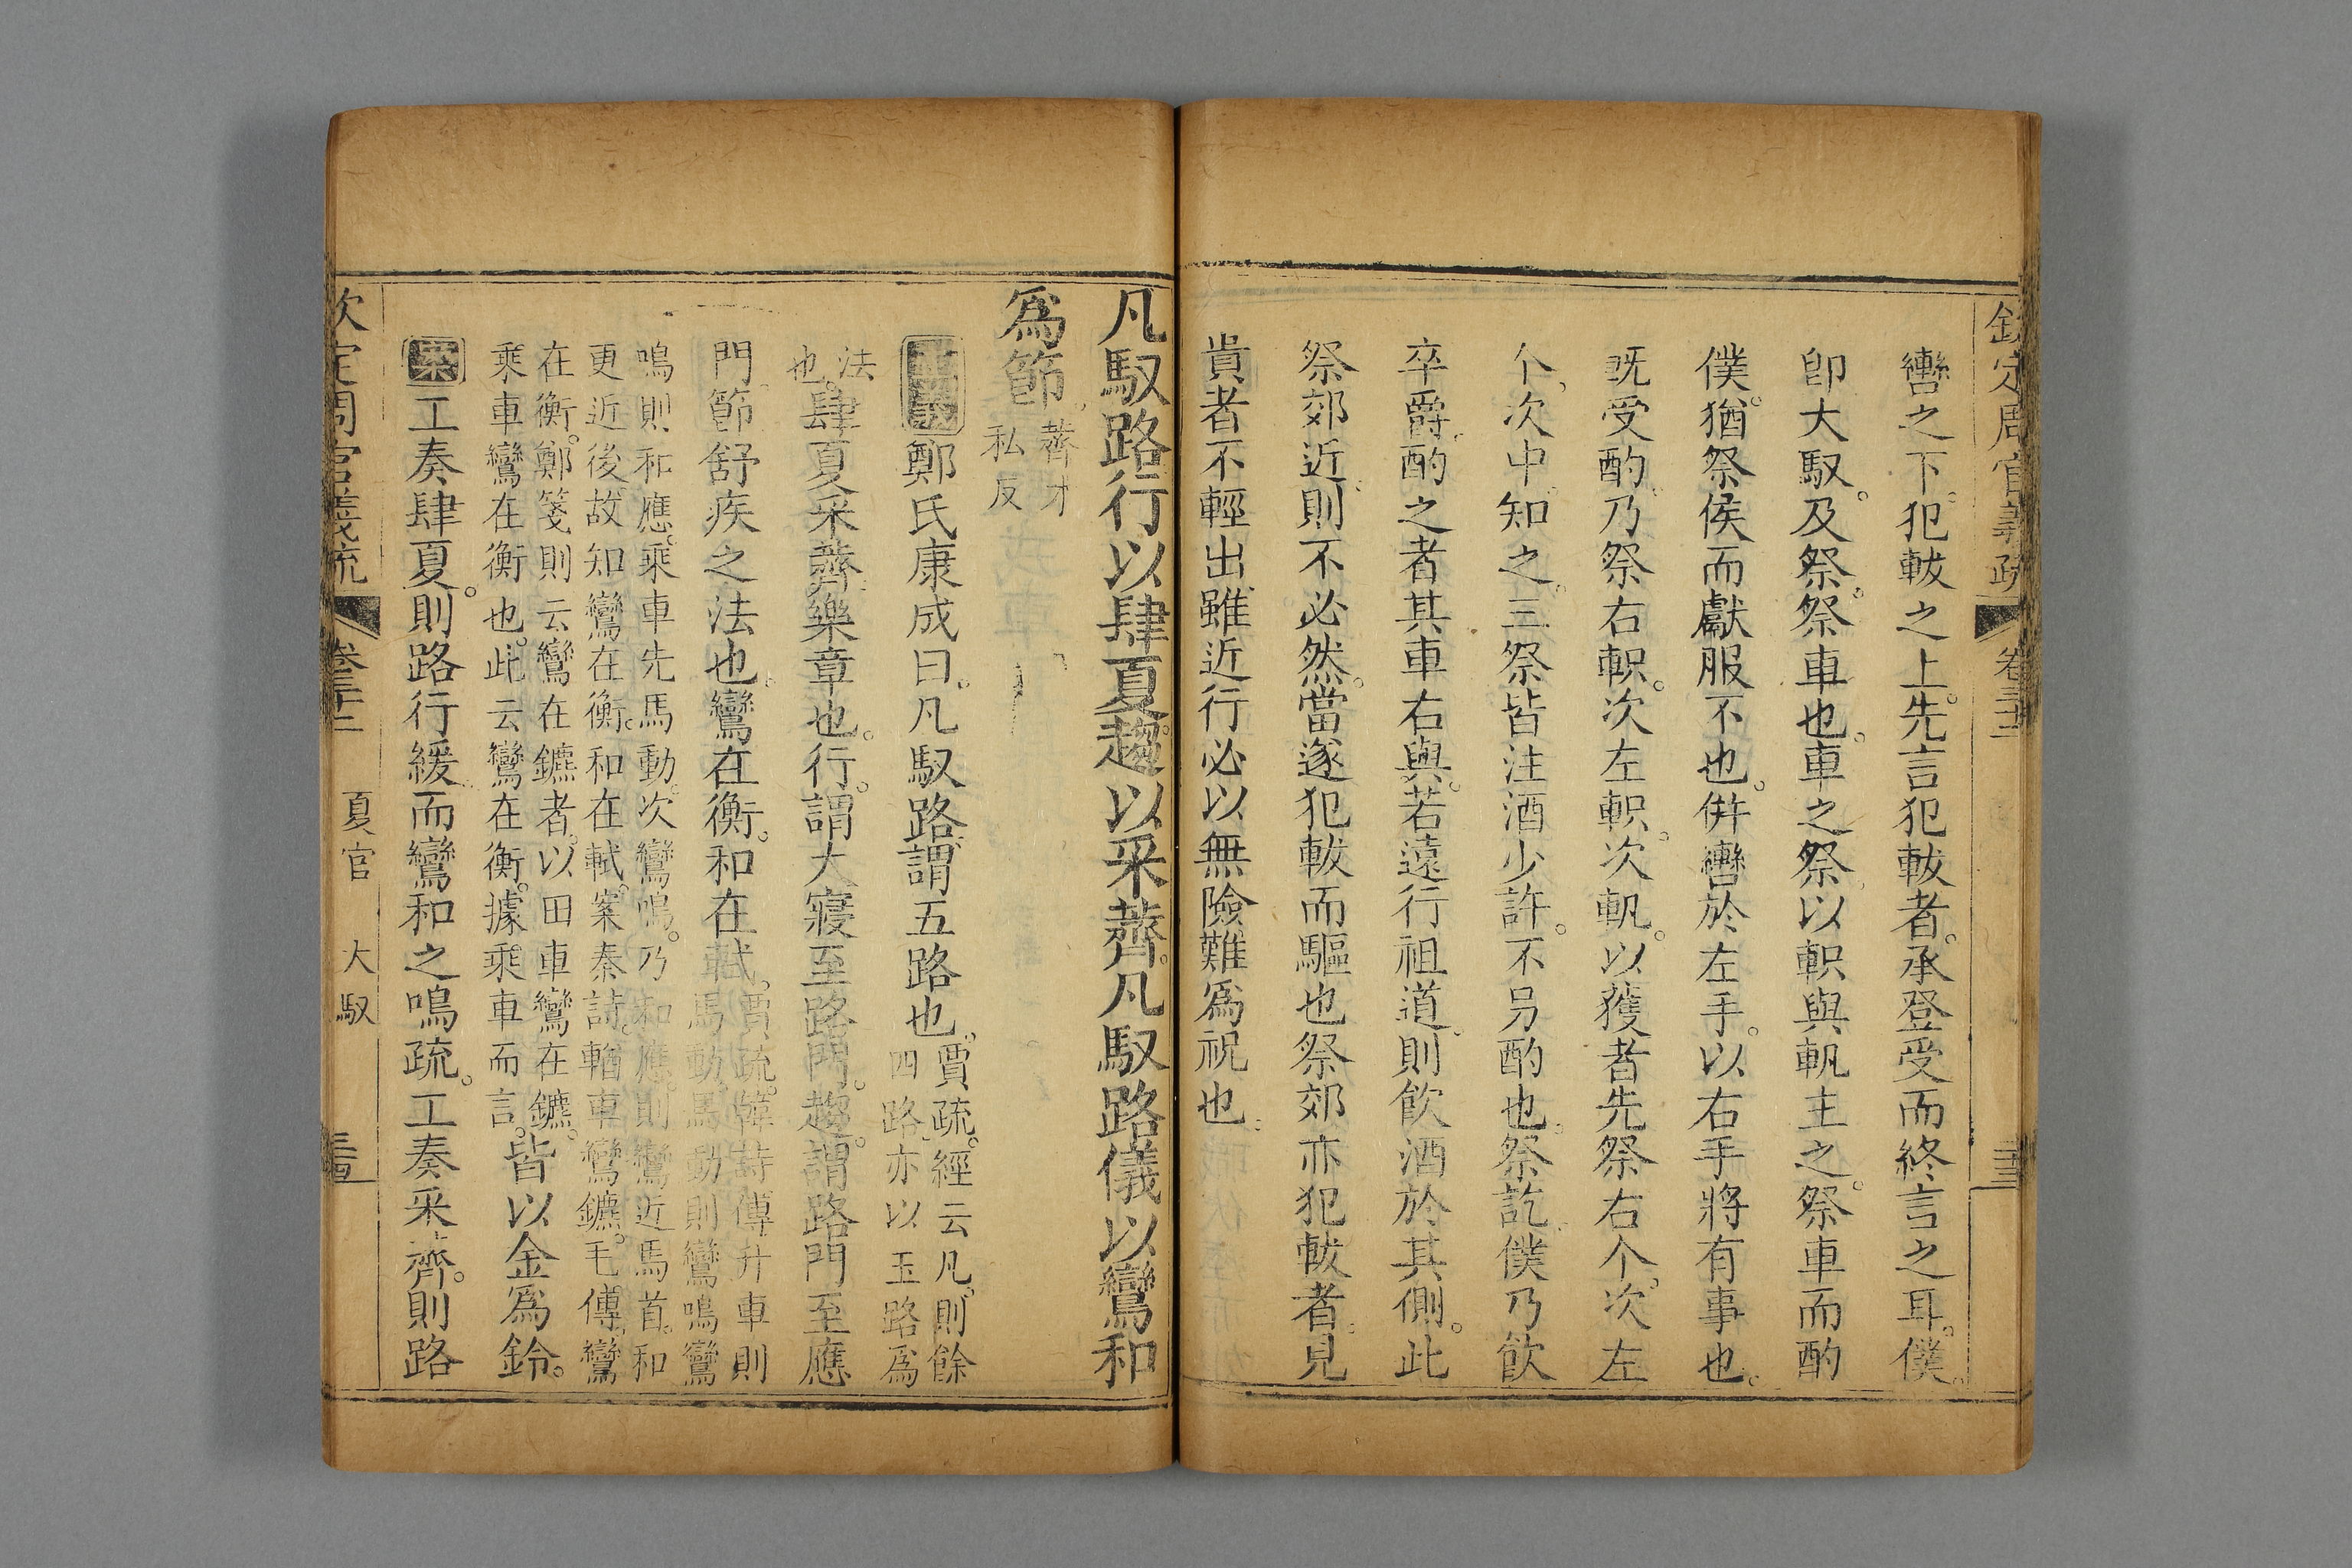 欽定周官義疏 卷三十二
轡之下。犯軷之上。先言犯軷者。承登受而終言之耳。僕。
卽大馭。及祭。祭車也。車之祭。以軹與軓主之。祭車而酌
僕。猶祭侯而獻服不也。倂轡於左手。以右手將有事也。
旣受酌。乃祭右軹。次左軹。次軓。以獲者先祭右个。次左
个、次中。知之。三祭皆注酒少許。不另酌也。祭訖。僕乃飮
卒爵。酌之者其車右與。若遠行祖道。則飮酒於其側。此
祭郊近。則不必然。當遂犯軷而驅也祭郊亦犯軷者。見
貴者不輕出。雖近行必以無險難爲祝也。
凡馭路行以肆夏趨以采薺。凡馭路儀以鸞和
爲節。薺才
私反
鄭氏康成曰。凡馭路。謂五路也。賈疏。經云凡。則餘
四路。亦以玉路爲
法
也。肆夏采薺。樂章也。行。謂大寢至路門。趨。謂路門至應
門。節舒疾之法也。鸞在衡。和在軾。賈疏。韓詩傳升車則
馬動。馬動則鸞鳴。鸞
鳴則和應。乘車先馬動。次鸞鳴。乃和應。則鸞近馬首。和
更近後。故知鸞在衡。和在軾。案秦詩。輶車鸞鑣。毛傳。鸞
在衡。鄭箋則云鸞在鑣者。以田車鸞在鑣。
乘車鸞在衡也。此云鸞在衡。據乘車而言。皆以金爲鈴。
案工奏肆夏。則路行緩而鸞和之鳴疏。工奏采薺。則路
欽定周官義疏 卷三十二 夏官 大馭